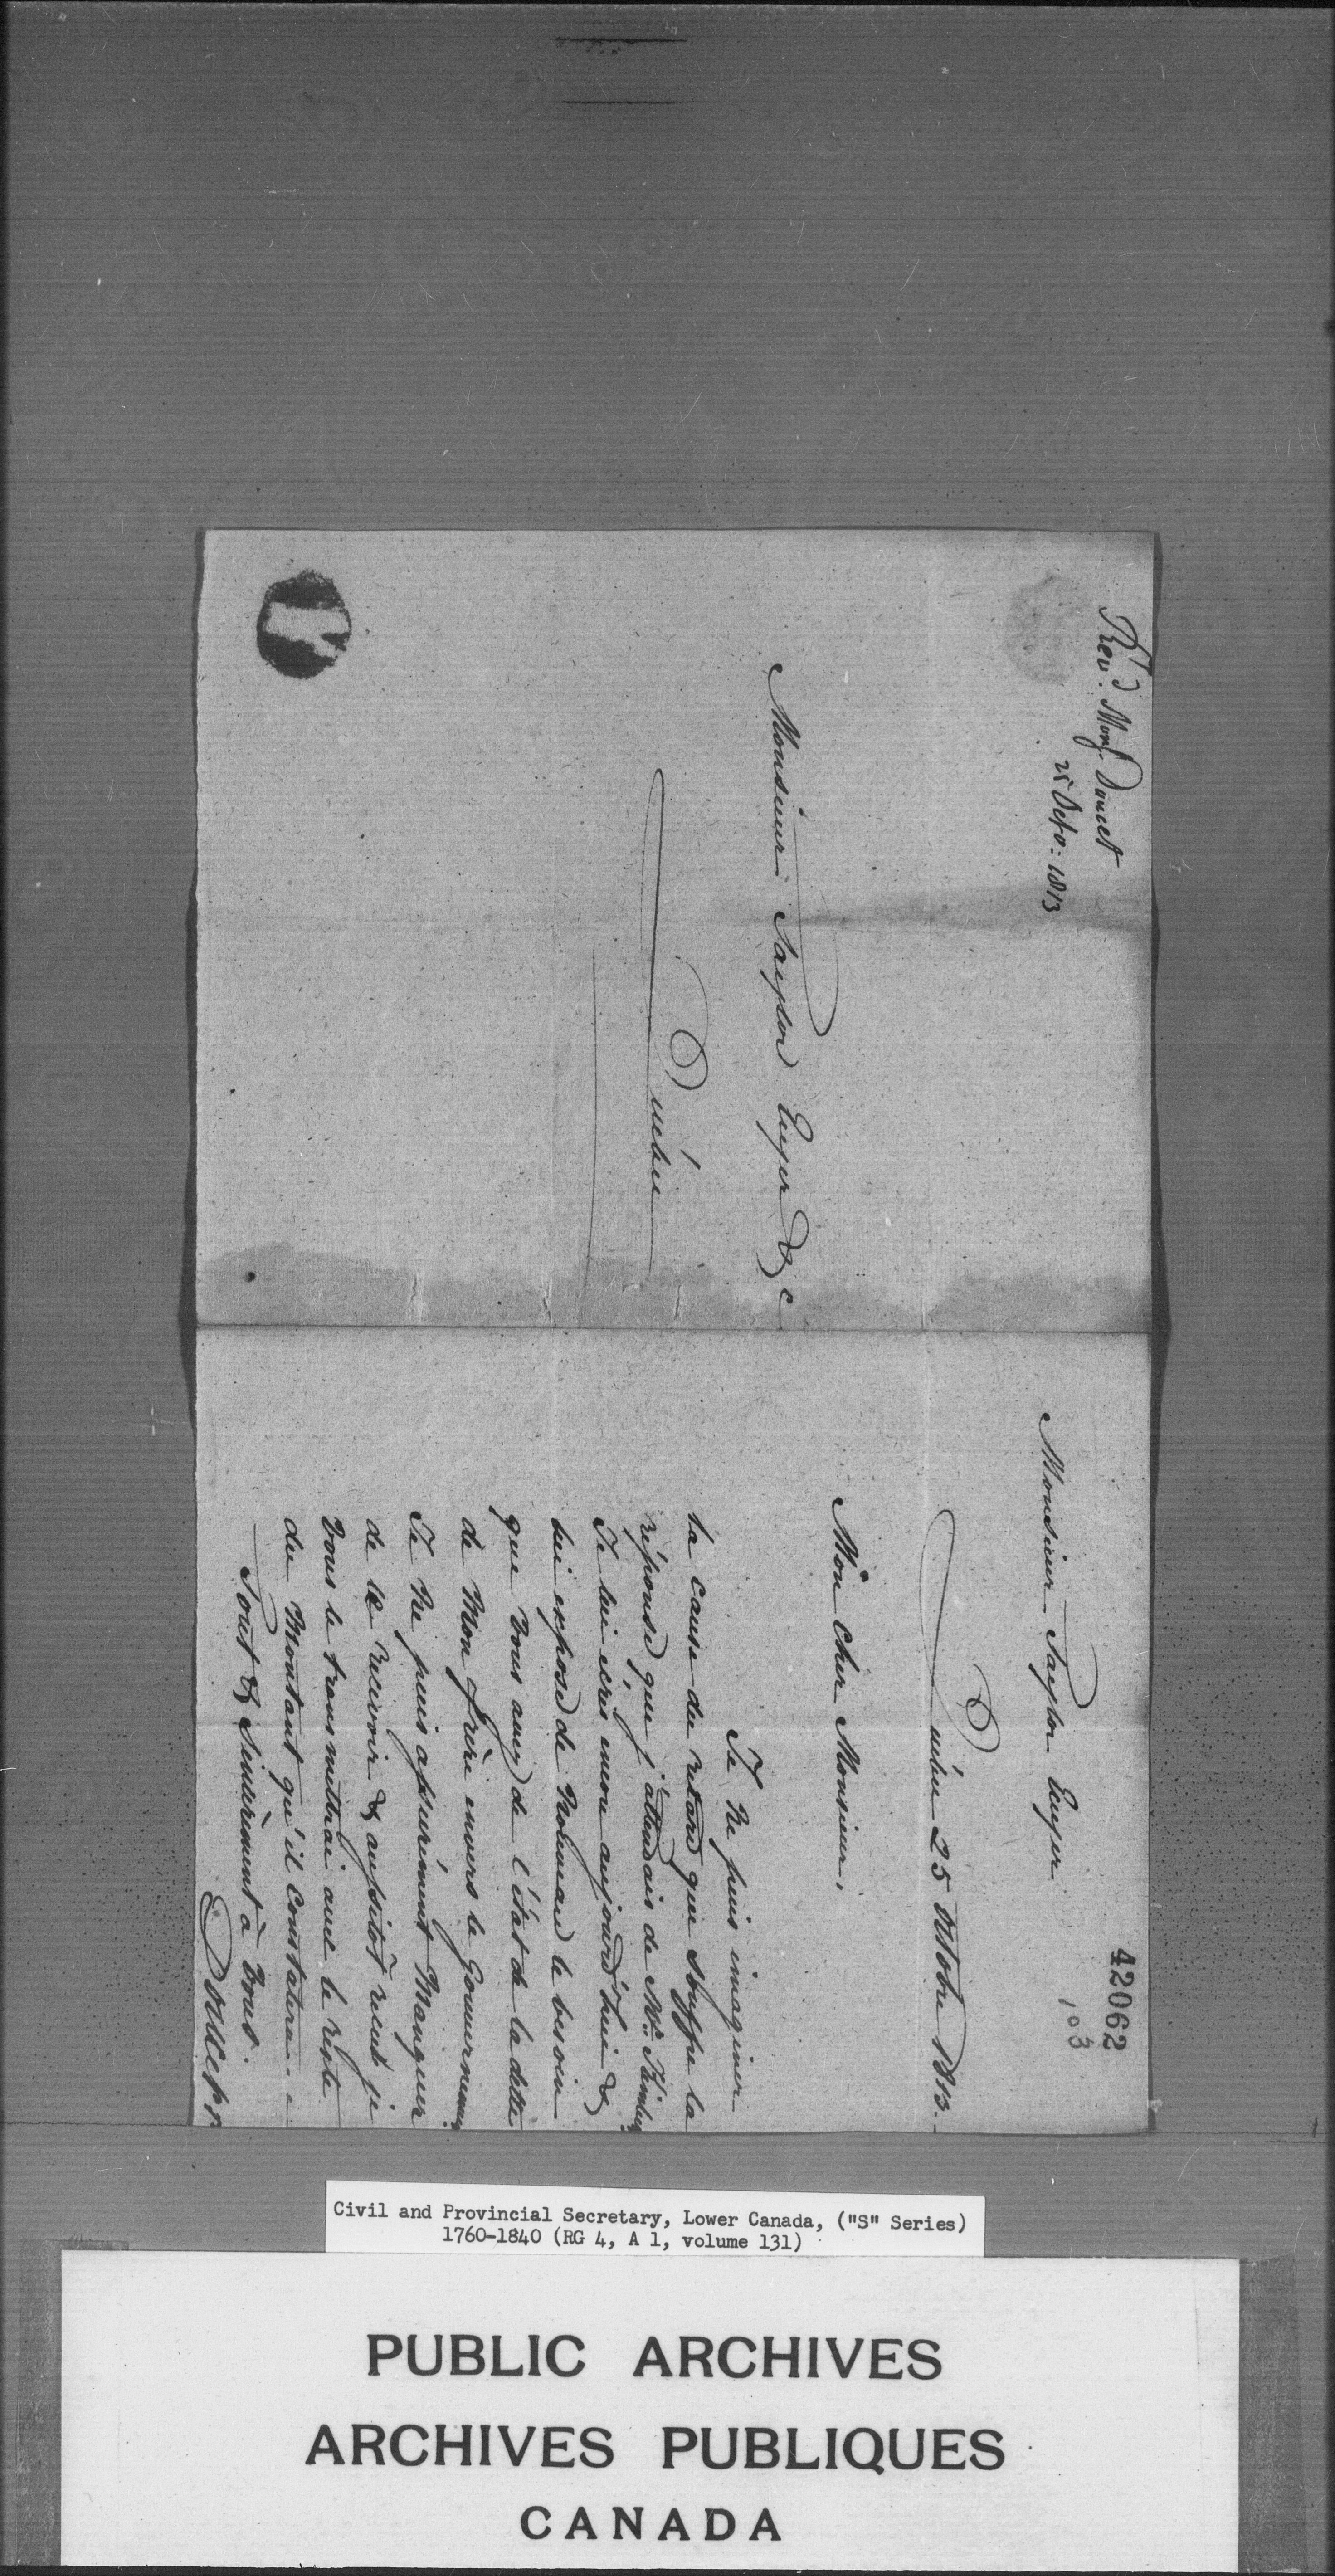 Revd. Monsr. Doucet
25 Octo: 1813
Monsieur Taylor Ecuyer &c
Québec
42062
103
Monsieur Taylor Ecuyer
Québec 25 Octobre 1813.
Mon cher Monsieur,
Je Ne puis imaginer
la cause du retard que souffre la
réponse que j'attendais de Mr.
Je lui écris encore aujourd'hui &
lui expose de Nouveau le besoin
que vous avez de l'état de la dette
de Mon frère envers le Gouvernement
Je Ne puis assurément Manquer
de le recevoir & aussitôt recu je
vous le transmettrai avec le reste
du Montant qu'il Constatera.
Tout & sincèrement à Vous.
Doucet ptr
Civil and Provincial Secretary, Lower Canada, ("S" Series)
1760-1840 (RG 4, A 1, volume 131)
PUBLIC ARCHIVES
ARCHIVES PUBLIQUES
CANADA